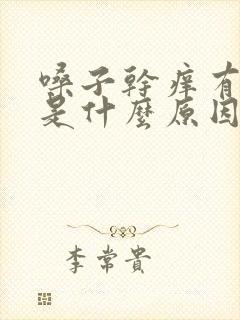 嗓子幹癢有
是什麼原因
李常貴